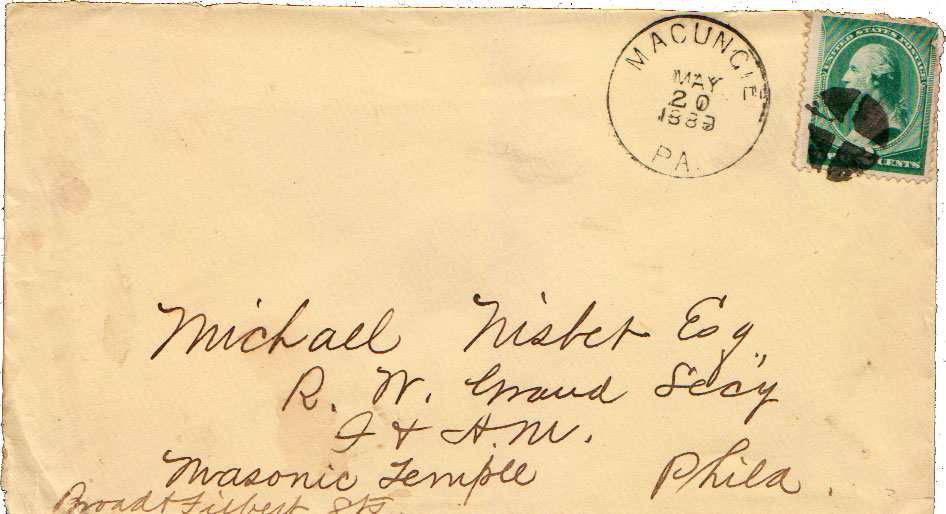 MACUNGIE
MAY
20
1889
PA.
UNITED STATES POSTAGE
CENTS
Michael Nisbet Esq,
R. W. Grand Secy
F & A.M.
Masonic Temple Phila.
Broad & Filbert Sts.